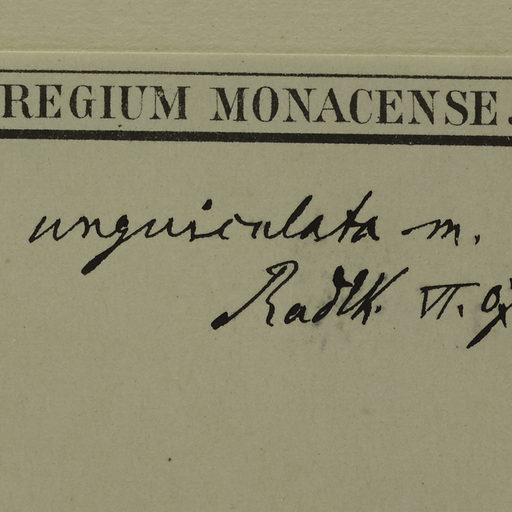 REGIUM MONACENSE.
unguiculata m.
Radlk. VI.